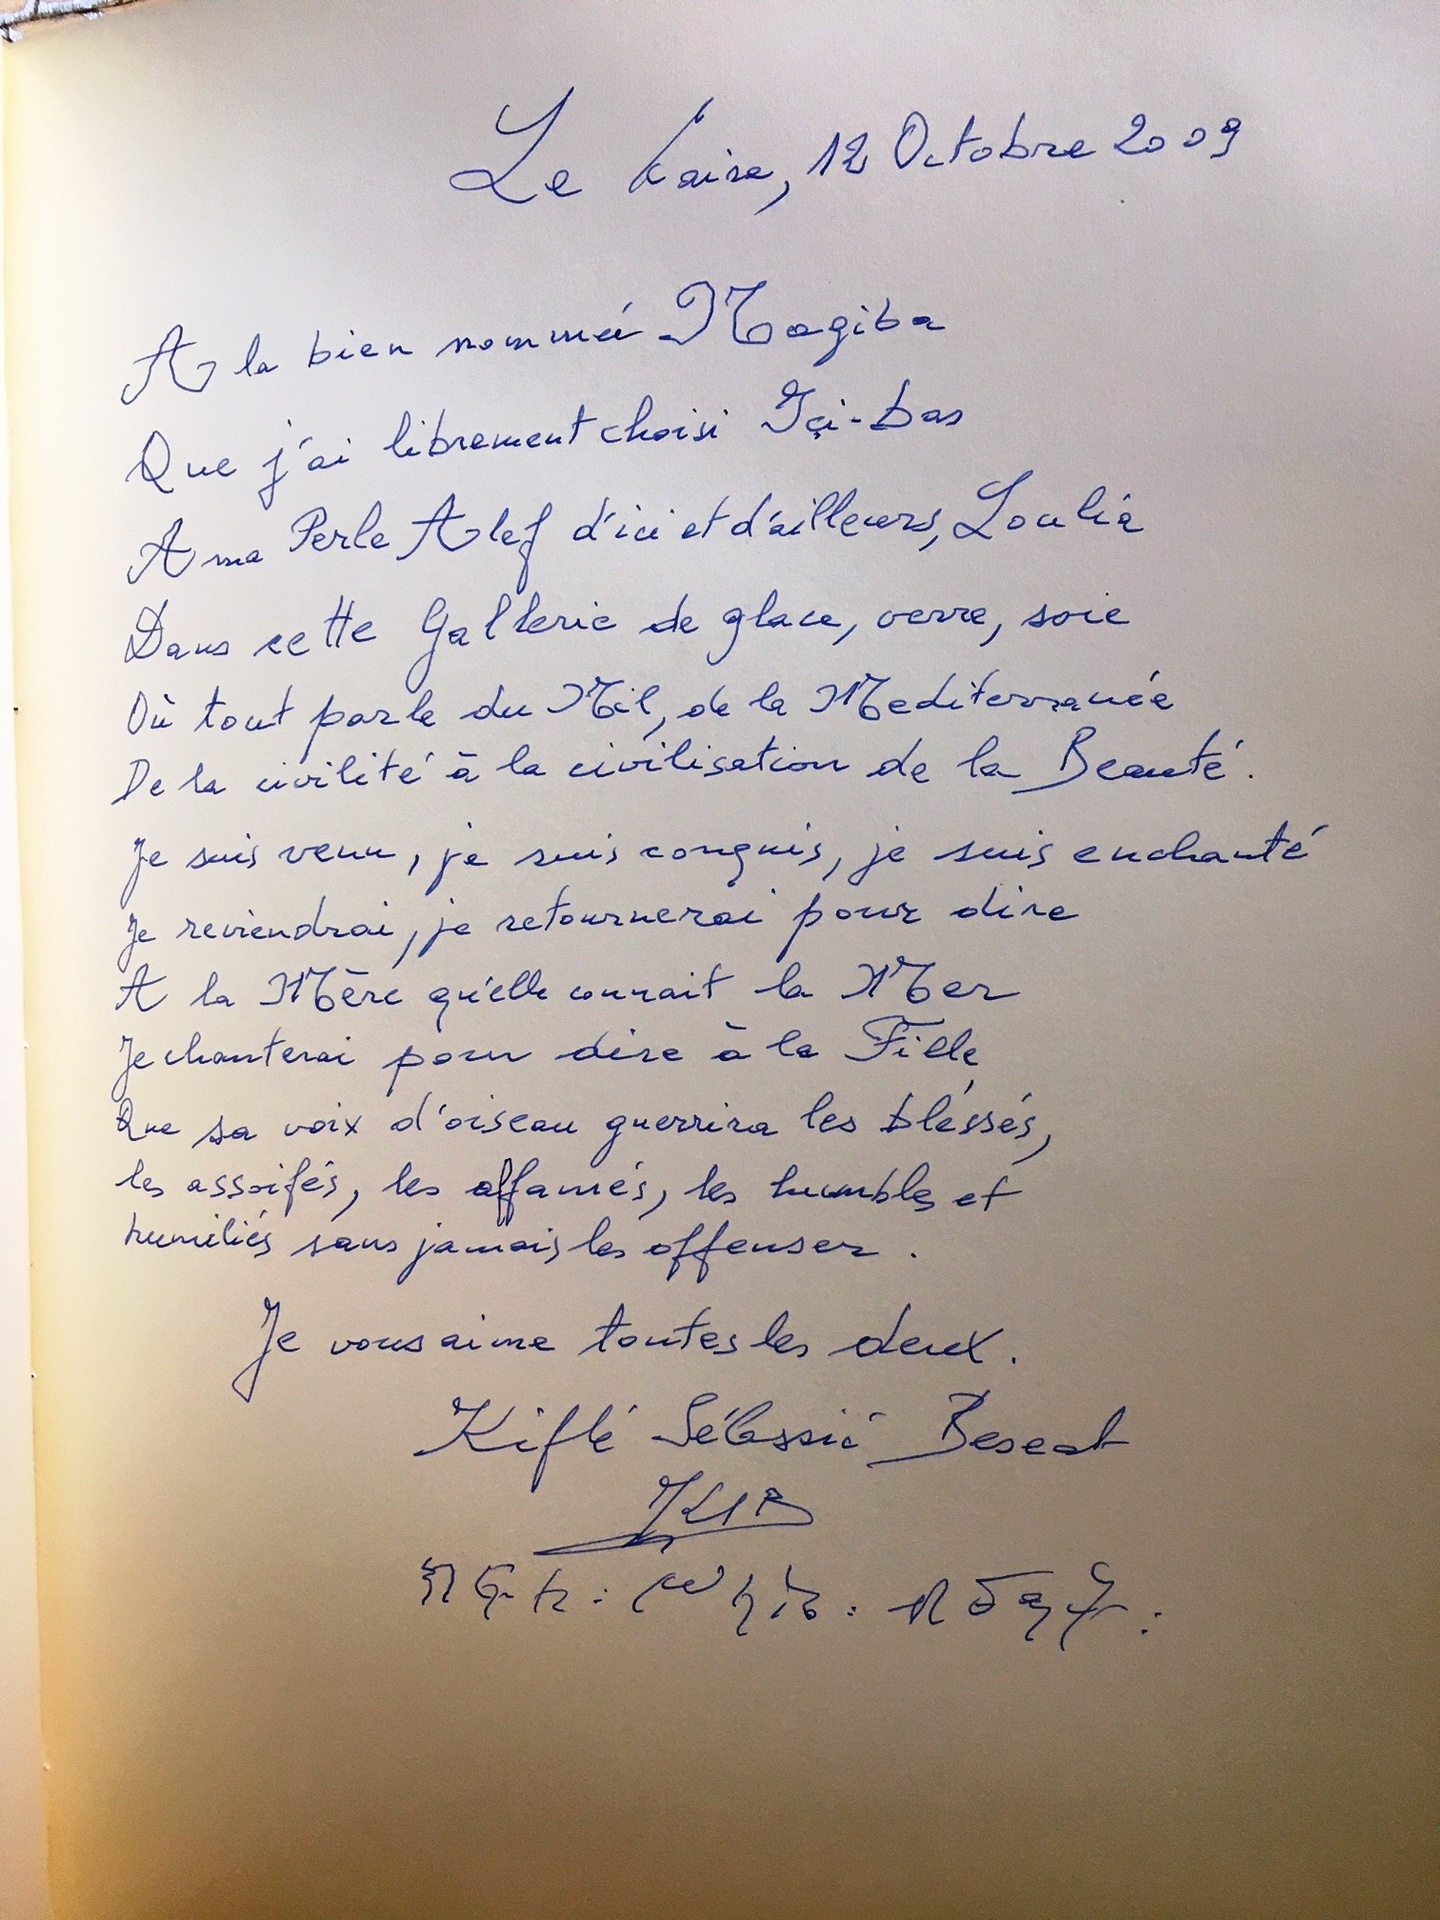 Le Caire, 12 Octobre 2009
A la bien nommée Nagiba
Que j'ai librement choisi Içi-bas
A ma Perle Alef d'ici et d'ailleurs, Loulia
Dans cette Gallerie de glace, verre, soie
Où tout parle du Nil, de la Mediterranée
De la civilité à la civilisation de la Beauté.
Je suis venu, je suis conquis, je suis enchanté
Je reviendrai, je retournerai pour dire
A la Mère qu'elle connait la Mer
Je chanterai pour dire à la Fille,
Que sa voix d'oiseau guerrira les bléssés,
les assoifés, les affamés, les humbles et
humiliés sans jamais les offenser.
Je vous aime toutes les deux.
Kiflé Sélassié Beseat
ክፍለ፡ ሥላሴ፡